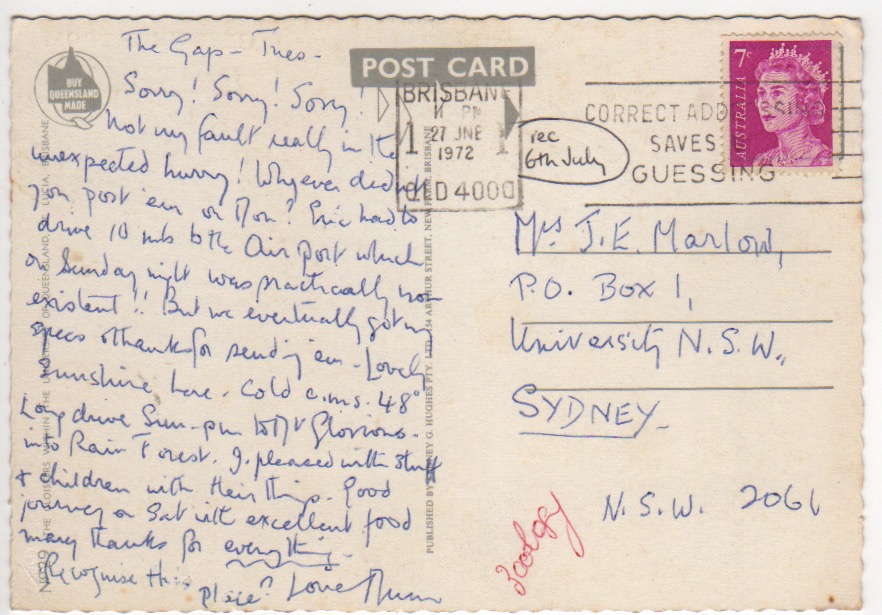 The Gap - Tues -
Sorry! Sorry! Sorry!
Not my fault really in the
unexpected hurry! Whyever didn't
you post 'em on Mon? Eric had to
drive 10 mls to the Air port which
on Sunday night was practically non
existent!! But we eventually got my
specs & thanks for sending 'em - Lovely
Sunshine here. Cold a.ms. 48°
Long drive Sun - pm to Mt Glorious -
into Rain Forest. J. pleased with stuff
& children with their things. Good
journey on Sat with excellent food
many thanks for everything -
Recognise this
place? Love Mum
BUY
QUEENSLAND
MADE
POST CARD
BRISBANE
PM
1 27 JNE 1
1972
QLD 4000
rec
6th July
CORRECT ADDRESSING
SAVES
GUESSING
7c
AUSTRALIA
Mrs J. E. Marlow,
P.O. Box 1,
University N.S.W.,
SYDNEY -
N.S.W. 2061
Zoology
No 29 THE CLOISTERS WITHIN THE UNIVERSITY OF QUEENSLAND, ST. LUCIA, BRISBANE
PUBLISHED BY SYDNEY G. HUGHES PTY. LTD. 254 ARTHUR STREET, NEW FARM, BRISBANE